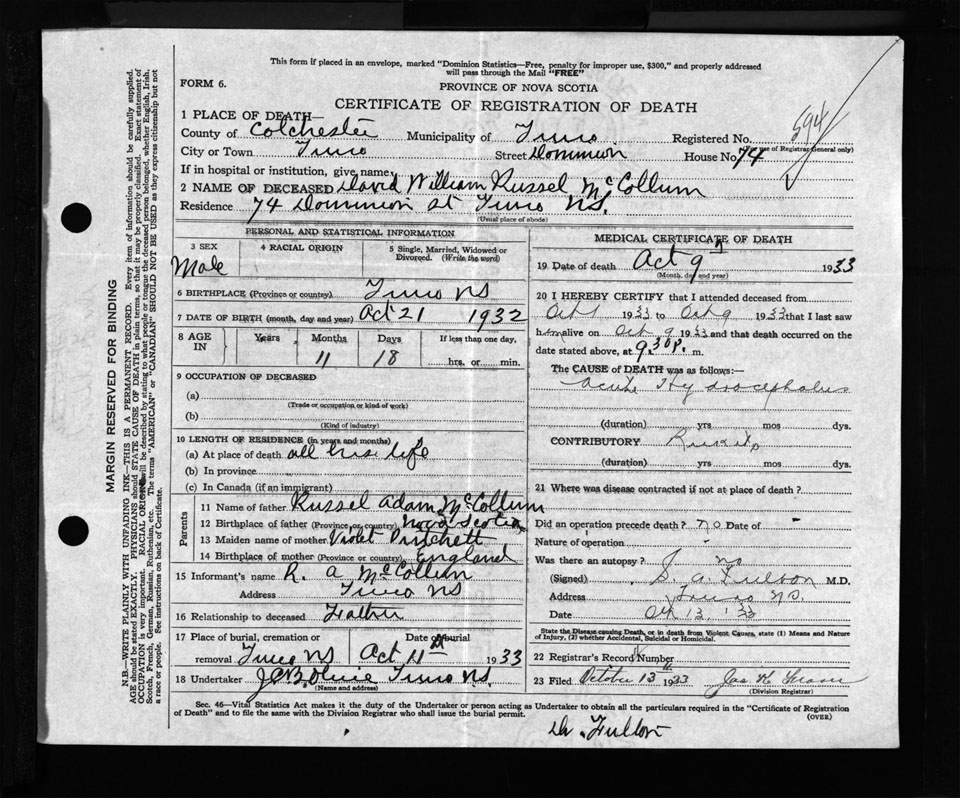 This form if placed in an envelope, marked "Dominion Statistics—Free, penalty for improper use, $300," and properly addressed
will pass through the Mail "FREE"
FORM 6.
PROVINCE OF NOVA SCOTIA
CERTIFICATE OF REGISTRATION OF DEATH
1 PLACE OF DEATH—
County of Colchester Municipality of Truro Registered No. 594
(For use of Registrar General only)
City or Town Truro Street Dominion House No. 74
If in hospital or institution, give name
2 NAME OF DECEASED David William Russel McCollum
Residence 74 Dominion St Truro NS.
(Usual place of abode)
PERSONAL AND STATISTICAL INFORMATION
3 SEX 4 RACIAL ORIGIN 5 Single, Married, Widowed or Divorced. (Write the word)
Male
6 BIRTHPLACE (Province or country) Truro NS
7 DATE OF BIRTH (month, day and year) Oct 21 1932
8 AGE IN Years Months Days If less than one day,
11 18 hrs. or min.
9 OCCUPATION OF DECEASED
(a)
(Trade or occupation or kind of work)
(b)
(Kind of industry)
10 LENGTH OF RESIDENCE (in years and months)
(a) At place of death all his life
(b) In province
(c) In Canada (if an immigrant)
Parents
11 Name of father Russel Adam McCollum
12 Birthplace of father (Province or country) Nova Scotia
13 Maiden name of mother Violet
14 Birthplace of mother (Province or country) England
15 Informant's name R. A McCollum
Address Truro NS
16 Relationship to deceased Father
17 Place of burial, cremation or Date of burial
removal Truro NS Oct 11th 1933
18 Undertaker Truro NS.
(Name and address)
MEDICAL CERTIFICATE OF DEATH
19 Date of death Oct 9 1933
(Month, day and year)
20 I HEREBY CERTIFY that I attended deceased from
Oct 1 1933 to Oct 9 1933 that I last saw
him alive on Oct 9 1933 and that death occurred on the
date stated above, at 9.30 P. m.
The CAUSE of DEATH was as follows:—
Acute Hydrocephalus
(duration) yrs mos dys.
CONTRIBUTORY
(duration) yrs mos dys.
21 Where was disease contracted if not at place of death?
Did an operation precede death? no Date of -
Nature of operation -
Was there an autopsy? no
(Signed) S. G. Fulton M.D.
Address Truro NS.
Date Oct 13 '33
State the Disease causing Death, or in death from Violent Causes, state (1) Means and Nature
of Injury, (2) whether Accidental, Suicidal or Homicidal.
22 Registrar's Record Number
23 Filed October 13 1933 Jas
(Division Registrar)
Sec. 46—Vital Statistics Act makes it the duty of the Undertaker or person acting as Undertaker to obtain all the particulars required in the "Certificate of Registration
of Death" and to file the same with the Division Registrar who shall issue the burial permit.
(OVER)
Dr. Fulton
MARGIN RESERVED FOR BINDING
N.B.—WRITE PLAINLY WITH UNFADING INK—THIS IS A PERMANENT RECORD. Every item of information should be carefully supplied.
AGE should be stated EXACTLY. PHYSICIANS should STATE CAUSE OF DEATH in plain terms, so that it may be properly classified. Exact statement of
OCCUPATION is very important. RACIAL ORIGIN will be described by stating to what people or tongue the deceased person belonged, whether English, Irish,
Scotch, French, German, Russian, Ruthenian, etc. The terms "AMERICAN" or "CANADIAN" SHOULD NOT BE USED as they express citizenship but not
a race or people. See instructions on back of Certificate.